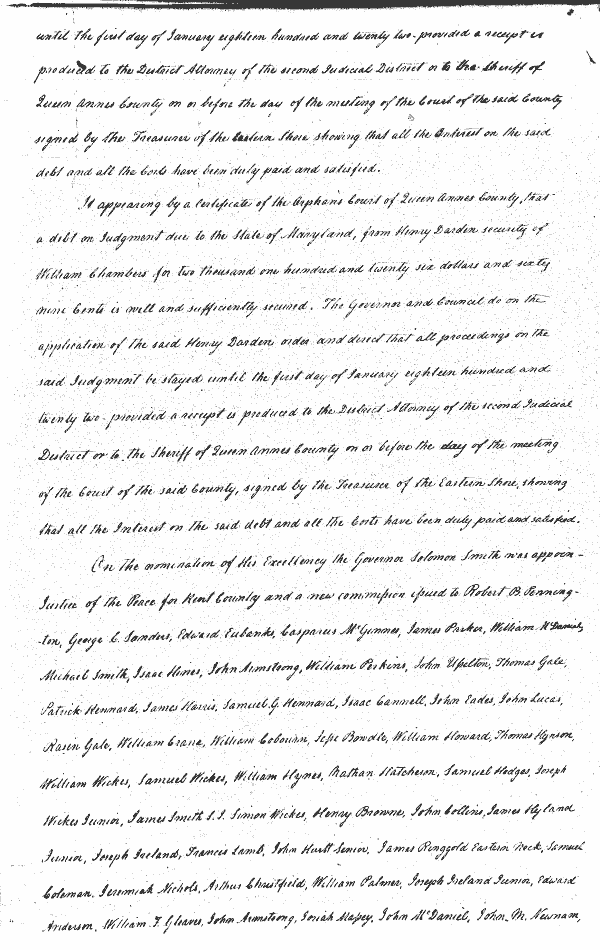 until the first day of January eighteen hundred and twenty two - provided a receipt is
produced to the District Attorney of the second Judicial District or to the Sheriff of
Queen Annes County on or before the day of the meeting of the Court of the said County
signed by the Treasurer of the Eastern Shore showing that all the Interest on the said
debt and all the Costs have been duly paid and satisfied.
It appearing by a certificate of the Orphans Court of Queen Annes County, that
a debt on Judgment due to the State of Maryland, from Henry Darden security of
William Chambers for two thousand one hundred and twenty six dollars and sixty
nine Cents is well and sufficiently secured. The Governor and Council do on the
application of the said Henry Darden order and direct that all proceedings on the
said Judgment be stayed until the first day of January eighteen hundred and
twenty two - provided a receipt is produced to the District Attorney of the second Judicial
District or to the Sheriff of Queen Annes County on or before the day of the meeting
of the Court of the said County, signed by the Treasurer of the Eastern Shore, showing
that all the Interest on the said debt and all the Costs have been duly paid and satisfied.
On the nomination of His Excellency the Governor Solomon Smith was appoin-
Justice of the Peace for Kent County and a new commission issued to Robert B. Penning-
-ton, George C. Sanders, Edward Eubanks, Casparus McGinnes, James Parker, William McDaniel,
Michael Smith, Isaac Hines, John Armstrong, William Perkins, John Thomas Gale,
Patrick Hennard, James Harris, Samuel G. Hennard, Isaac Cannell, John Eades, John Lucas,
Rasin Gale, William Crane, William Cobourn, Jesse Bowdle, William Howard, Thomas Hynson,
William Wickes, Samuel Wickes, William Hynes, Nathan Hatcheson, Samuel Hodges, Joseph
Wickes Junior, James Smith S.S. Simon Wickes, Henry Browne, John Collins, James Hyland
Junior, Joseph Ireland, Francis Lamb, John Hurtt Senior, James Ringgold Eastern Neck, Samuel
Coleman, Jeremiah Nichols, Arthur Christfield, William Palmer, Joseph Ireland Junior, Edward
Anderson, William T. Gleaves, John Armstrong, Josiah Massey, John McDaniel, John M. Newnam,